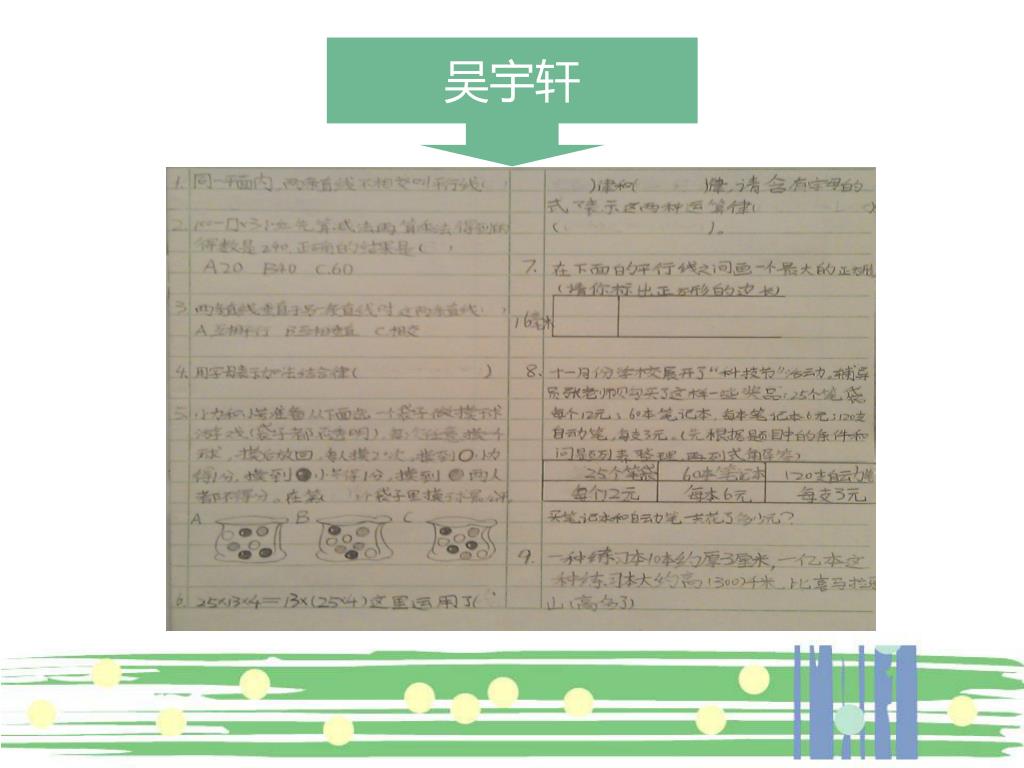 吴宇轩
1. 同一平面内,两条直线不相交叫平行线(
先算减法再算乘法得到的
得数是240,正确的结果是( )
A20 B40 C.60
3. 两条直线垂直于另一条直线时,这两条直线(
A.互相平行 B互相垂直 C.相交
4. 用字母表示加法结合律( )
5. 小力和小芳准备从下面选一个袋子做摸球
游戏(袋子都不透明),每次任意摸一个
球,摸后放回,每人摸2次,摸到○小力
得1分,摸到●小芳得1分,摸到 两人
都不得分。在第 个袋子里摸球是公平
A B C
6. 25×13×4=13×(25×4)这里运用了(
)律和( )律,请含有字母的
式子表示这两种运算律( )
( )。
7. 在下面的平行线之间画一个最大的正方形
(请你标出正方形的边长)
16毫米
8. 十一月份学校展开了“科技节”活动,辅导
员张老师购买了这样一些奖品:25个笔袋
每个12元;60本笔记本,每本笔记本6元;120支
自动笔,每支3元。(先根据题目中的条件和
问题列表整理,再列式解答)
25个笔袋 60本笔记本 120支自动笔
每个12元 每本6元 每支3元
买笔记本和自动笔一共花了多少元?
9. 一种练习本10本约厚3厘米,一亿本这
种练习本大约高(300)千米,比喜马拉雅
山(高多了)